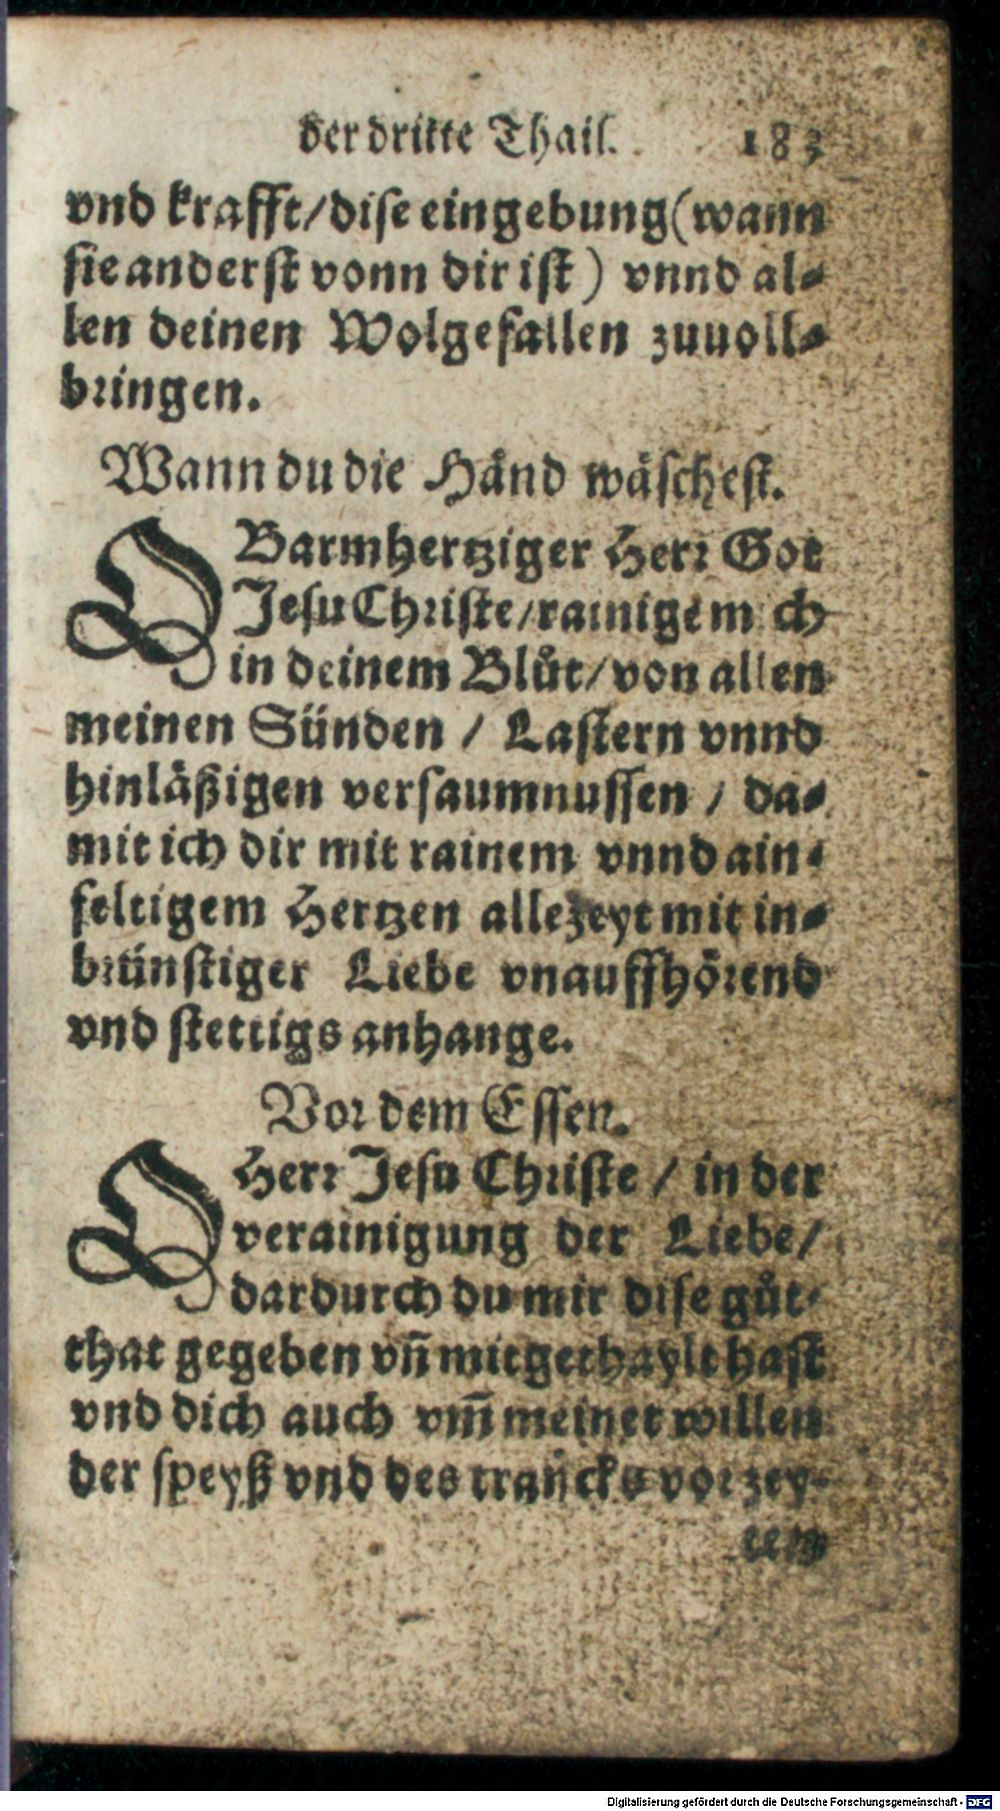 der dritte Thail. 183
vnd krafft/dise eingebung(wann
sie anderst vonn dir ist) vnnd al-
len deinen Wolgefallen zuuoll-
bringen.
Wann du die Hånd wäschest.
O Barmhertziger Herr Got
Jesu Christe/rainige mich
in deinem Blůt/von allen
meinen Sünden / Lastern vnnd
hinläßigen versaumnussen / da-
mit ich dir mit rainem vnnd ain-
feltigem Hertzen allezeyt mit in-
brünstiger Liebe vnauffhörend
vnd stettigs anhange.
Vor dem Essen.
O Herr Jesu Christe / in der
verainigung der Liebe/
dardurch du mir dise gůt-
that gegeben vñ mitgethaylt hast
vnd dich auch vm̃ meinet willen
der speyß vnd des trancks vor zey-
Digitalisierung gefördert durch die Deutsche Forschungsgemeinschaft - DFG